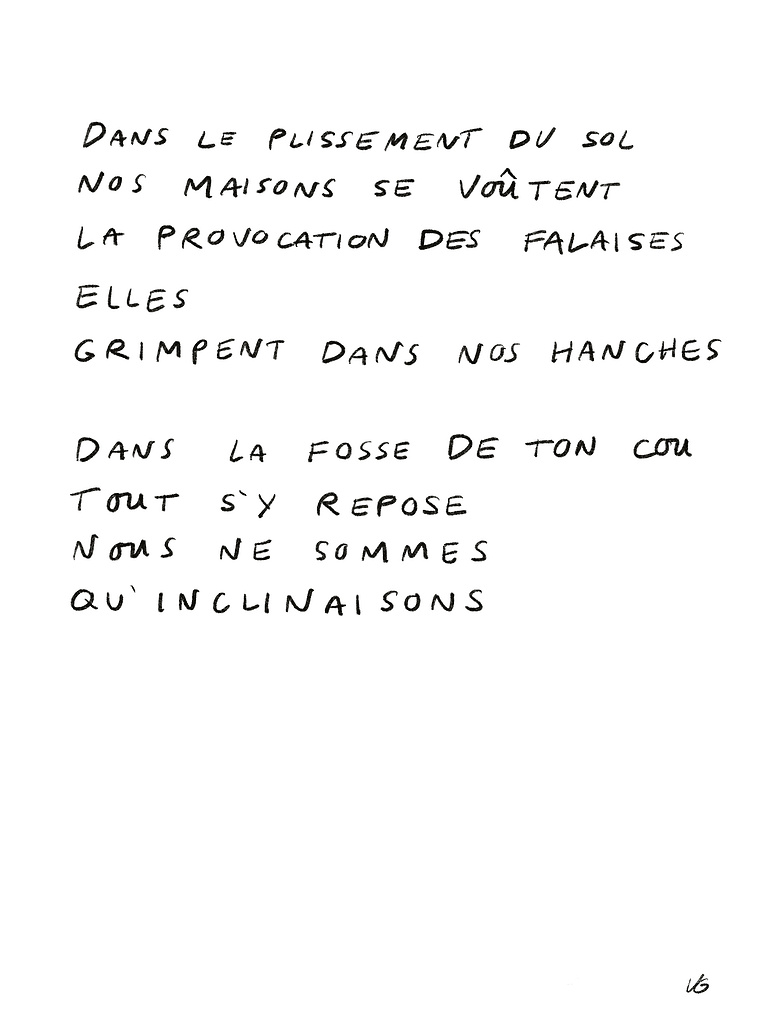 DANS LE PLISSEMENT DU SOL
NOS MAISONS SE VOÛTENT
LA PROVOCATION DES FALAISES
ELLES
GRIMPENT DANS NOS HANCHES
DANS LA FOSSE DE TON COU
TOUT S'Y REPOSE
NOUS NE SOMMES
QU'INCLINAISONS
VG